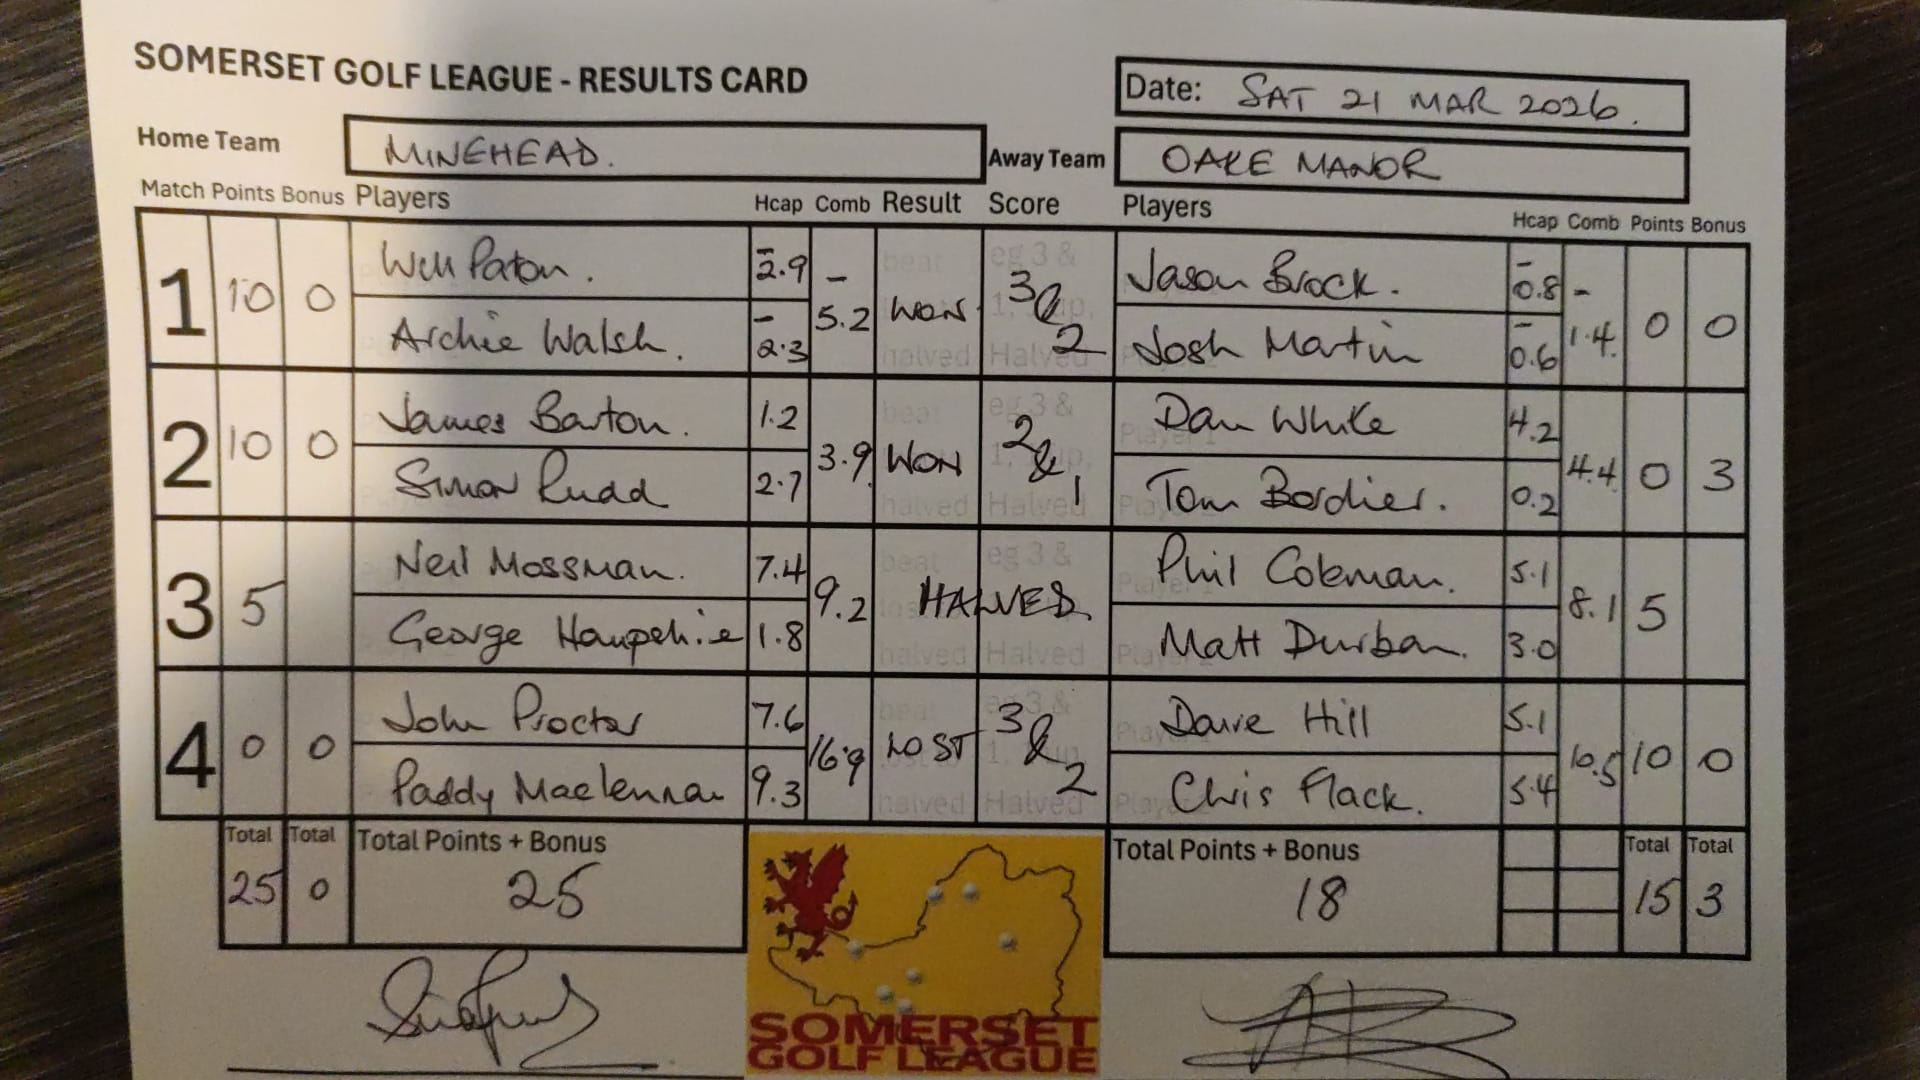 SOMERSET GOLF LEAGUE - RESULTS CARD
Date: SAT 21 MAR 2026.
Home Team MINEHEAD.
Away Team OAKE MANOR
Match Points Bonus Players Hcap Comb Result Score Players Hcap Comb Points Bonus
1 10 0 Will Paton. -2.9 -5.2 WON 3&2 Jason Brock. -0.8 -1.4. 0 0
Archie Walsh. -2.3 Josh Martin -0.6
2 10 0 James Barton. 1.2 3.9 WON 2&1 Dan White 4.2 4.4 0 3
Simon Rudd 2.7 Tom Bordier. 0.2
3 5 Neil Mossman. 7.4 9.2 HALVED Phil Coleman. 5.1 8.1 5
George Hampshire 1.8 Matt Durban. 3.0
4 0 0 John Proctor 7.6 16.9 LOST 3&2 Dave Hill 5.1 10.5 10 0
Paddy Maclennan 9.3 Chris Flack. 5.4
Total Total Total Points + Bonus Total Points + Bonus Total Total
25 0 25 18 15 3
SOMERSET
GOLF LEAGUE